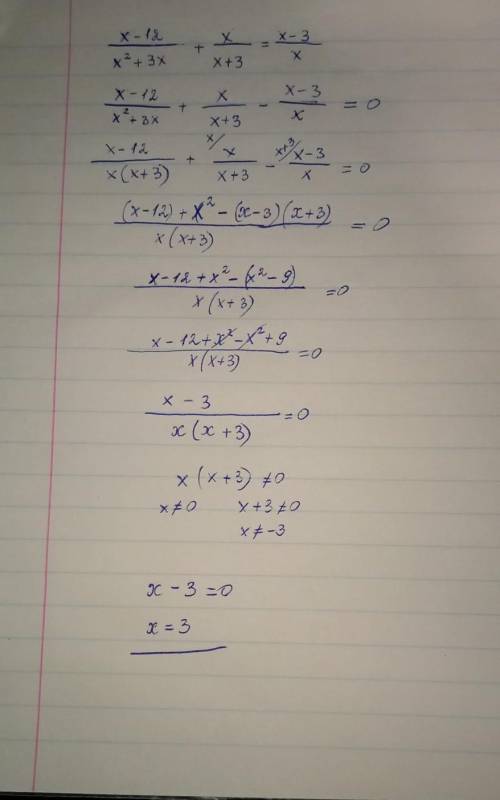 (x-12)/(x²+3x) + x/(x+3) = (x-3)/x
(x-12)/(x²+3x) + x/(x+3) - (x-3)/x = 0
(x-12)/(x(x+3)) + ˣ⁄ x/(x+3) - ˣ⁺³⁄ (x-3)/x = 0
((x-12)+x²-(x-3)(x+3))/(x(x+3)) = 0
(x-12+x²-(x²-9))/(x(x+3)) =0
(x-12+x²-x²+9)/(x(x+3)) =0
(x-3)/(x(x+3)) =0
x(x+3)≠0
x≠0 x+3≠0
x≠-3
x-3=0
x=3